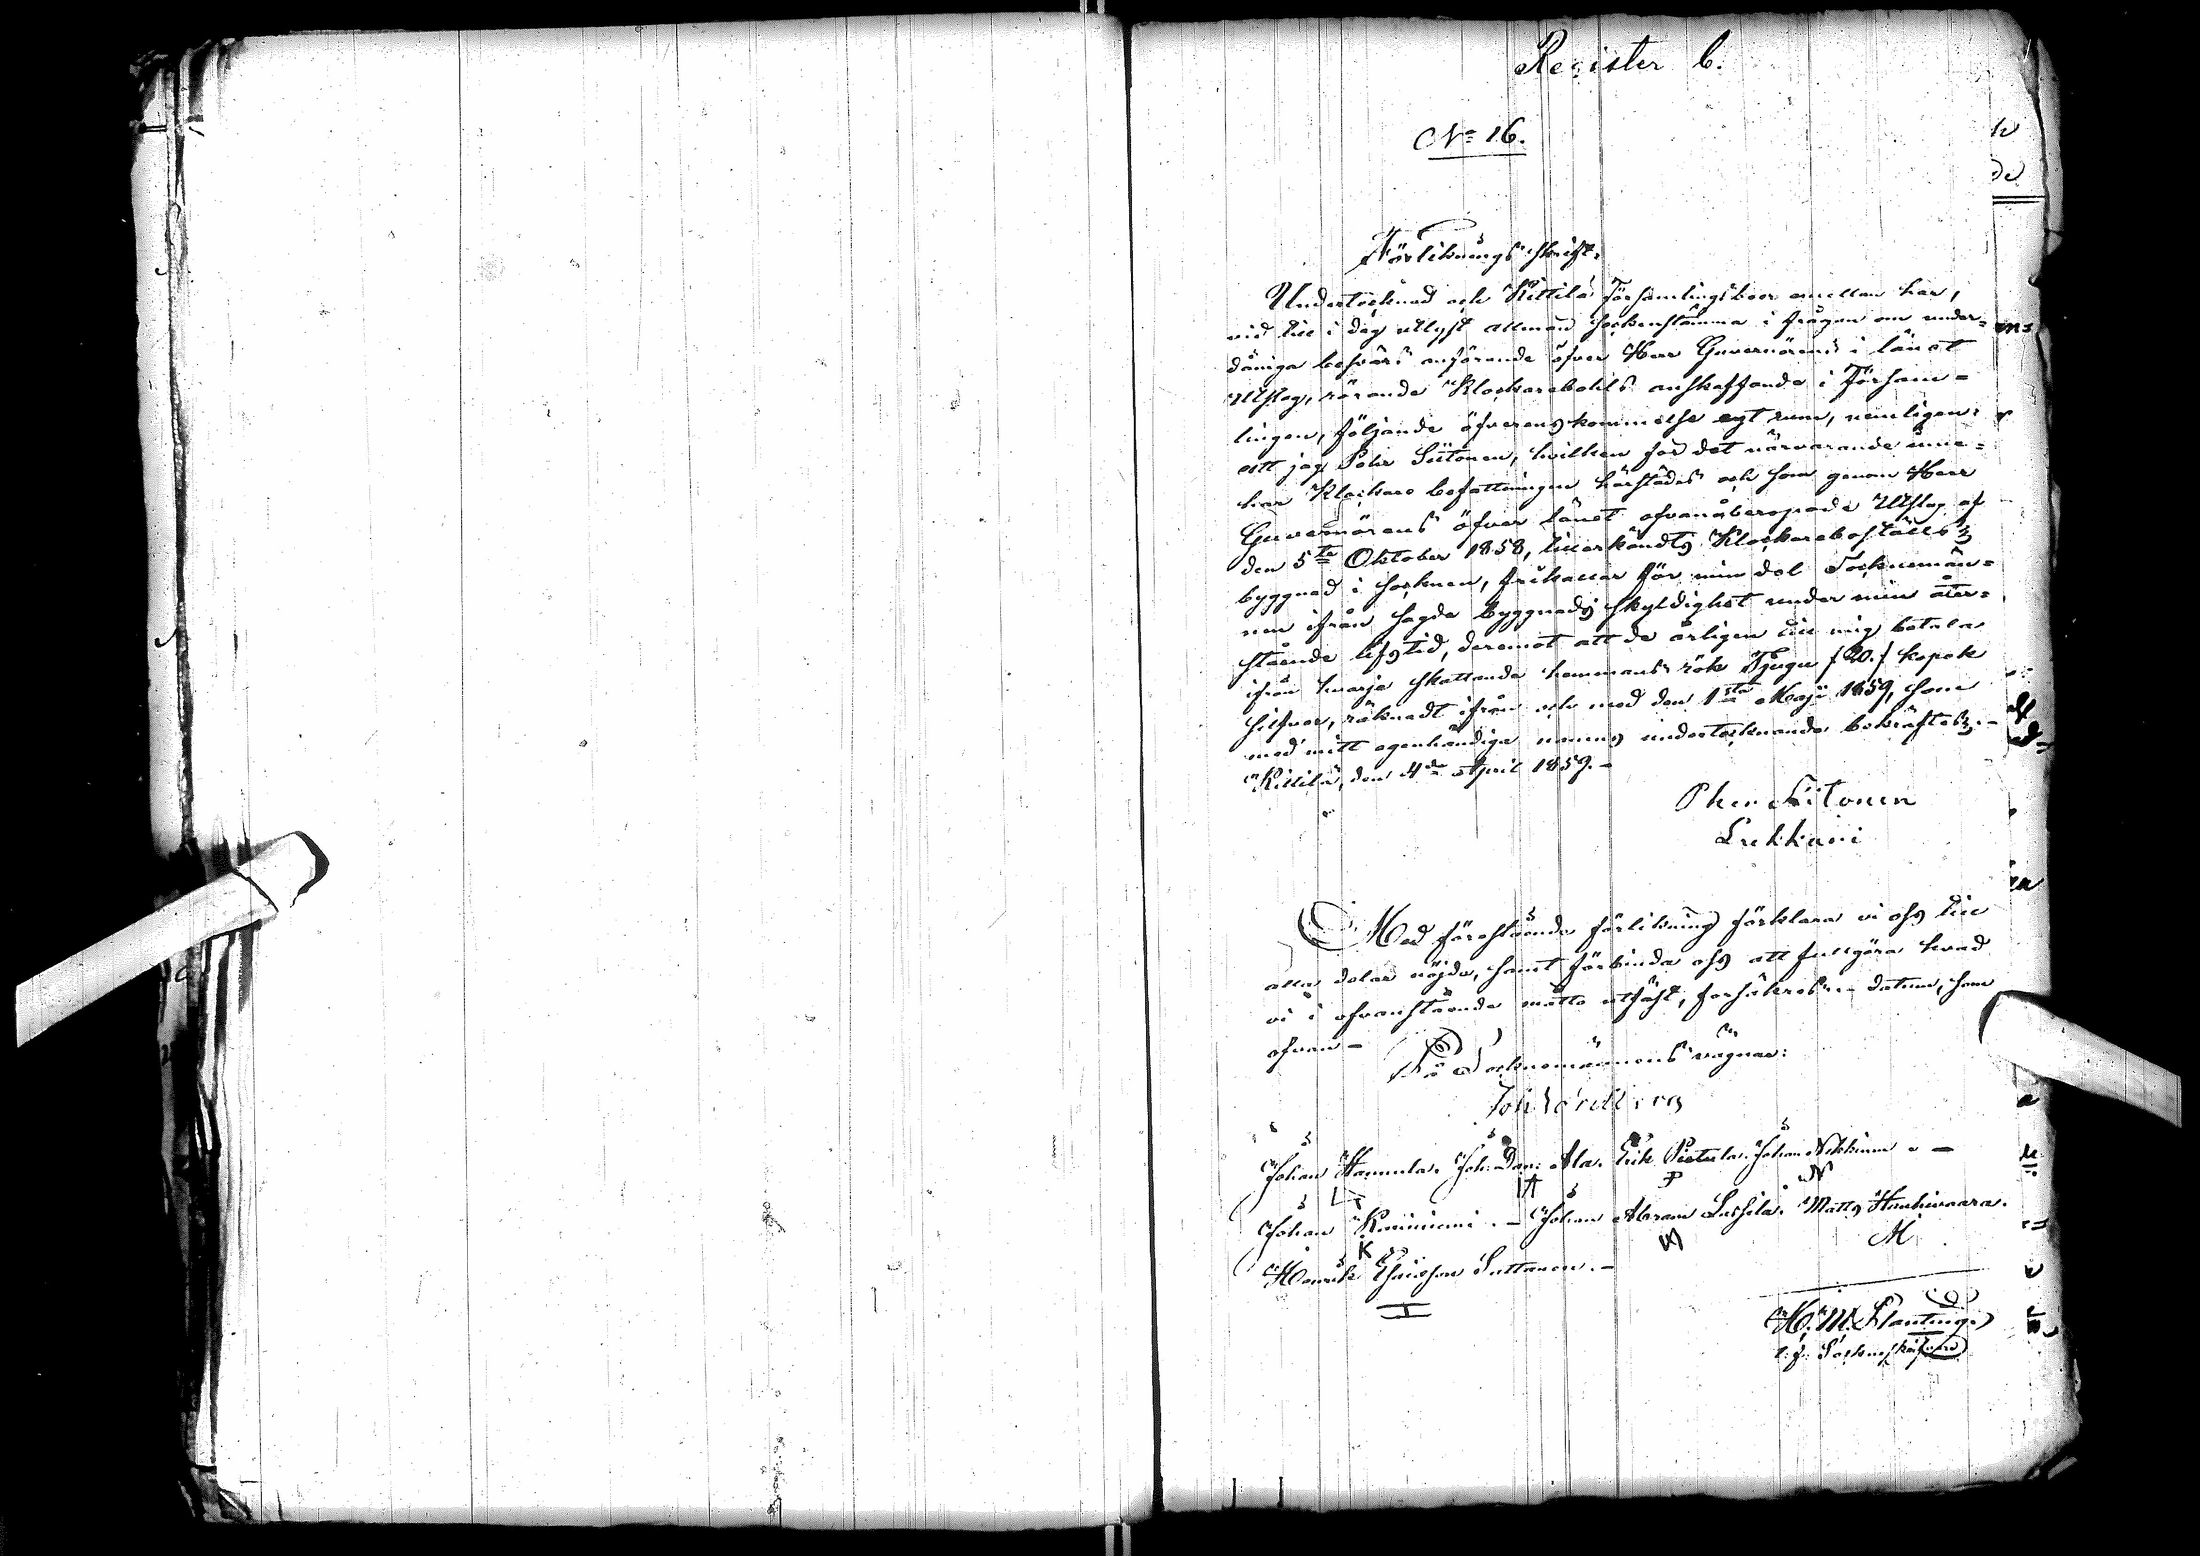 Register C.
No 16.
Förlikningsskrift.
Undertecknad och Kittilä Församlingsboer emellan har,
vid till i dag utlyst allmän sockenstämma i frågan om under-
dåniga besvärs anförande öfver Herr Guvernörens i länet
Utslag, rörande Klockarebohls anskaffande i Försam-
lingen, följande öfverenskommelse egt rum, nemligen:
att jag Pehr Siitonen, hvilken för det närvarande inne-
har Klockare befattningen härstädes och som genom Herr
Guvernörens öfver länet ofvanåberopade Utslag af
den 5te Oktober 1858, tillerkändts Klockareboställs
byggnad i socknen, frikallar för min del Sockenmän-
nen ifrån sagde byggnads skyldighet under min åter-
stående lifstid, deremot att de årligen till mig betala
ifrån hvarje skattande hemmans rök Tjugu /20./ kopek
silfver, räknadt ifrån och med den 1sta Maji 1859, som
med mitt egenhändiga namns undertecknande bekräftes.-
Kittilä, den 4de April 1859.-
Pher Siitonen
Lukkari
Med förestående förlikning förklara vi oss till
alla delar nöjde, samt förbinda oss att fullgöra hvad
vi i ofvanstående måtto utfäst, försäkres. datum, som
ofvan -
På Sockenemännens vägnar:
Johan Hannula. Joh: Dan: Ala. Erik Pietula. Johan Nikkinen. -
P N
Johan Kauniemi. - Johan Abram Lassila. Matts Hanhivaara.
K M
Henrik Ericsson Suttanen. -
I
H. M. Planting
t. f. Sockneskrifvare